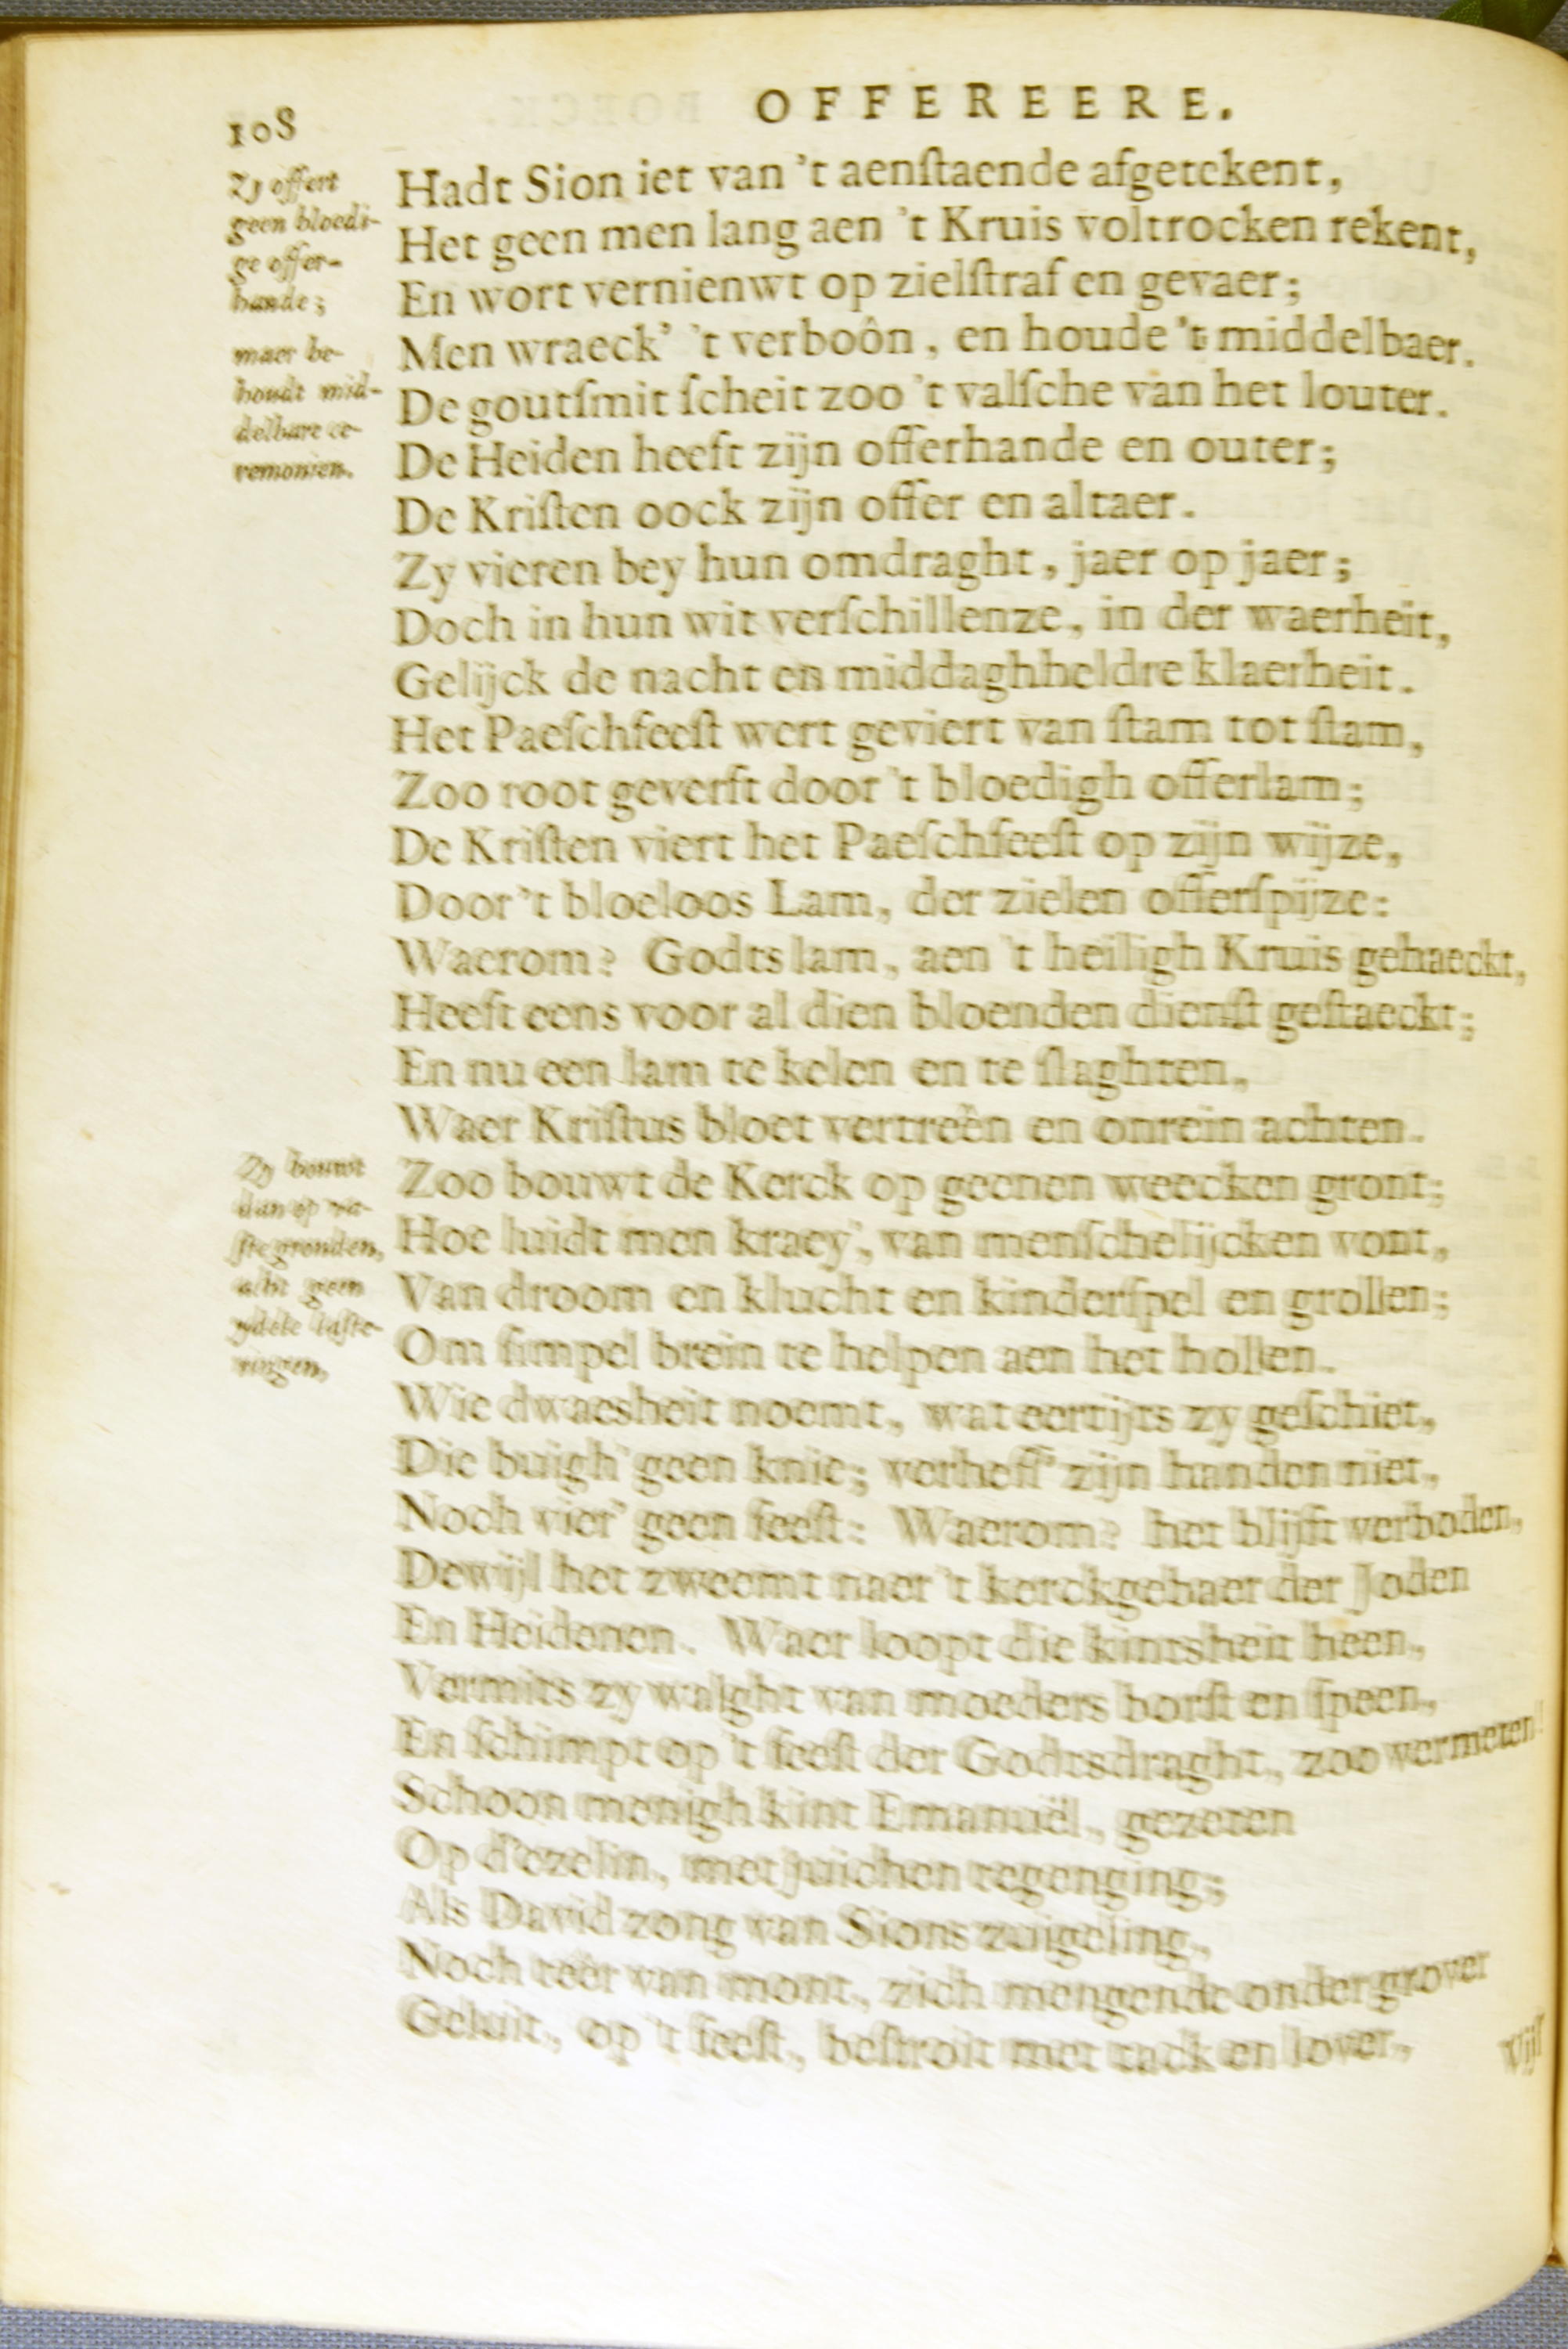 108
OFFEREERE.
Zy offert
geen bloedi-
ge offer-
hande;
maer be-
houdt mid-
delbare ce-
remonien.
Hadt Sion iet van 't aenſtaende afgetekent,
Het geen men lang aen 't Kruis voltrocken rekent,
En wort vernienwt op zielſtraf en gevaer;
Men wraeck' 't verboôn, en houde 't middelbaer.
De goutſmit ſcheit zoo 't valſche van het louter.
De Heiden heeft zijn offerhande en outer;
De Kriſten oock zijn offer en altaer.
Zy vieren bey hun omdraght, jaer op jaer;
Doch in hun wit verſchillenze, in der waerheit,
Gelijck de nacht en middaghheldre klaerheit.
Het Paeſchfeeſt wert geviert van ſtam tot ſtam,
Zoo root geverft door 't bloedigh offerlam;
De Kriſten viert het Paeſchfeeſt op zijn wijze,
Door 't bloeloos Lam, der zielen offerſpijze:
Waerom? Godts lam, aen 't heiligh Kruis gehaeckt,
Heeft eens voor al dien bloenden dienſt geſtaeckt;
En nu een lam te kelen en te ſlaghten,
Waer Kriſtus bloet vertreên en onrein achten.
Zy bouwt
dan op va-
ſte gronden,
acht geen
ydele laſte-
ringen,
Zoo bouwt de Kerck op geenen weecken gront;
Hoe luidt men kraey', van menſchelijcken vont,
Van droom en klucht en kinderſpel en grollen;
Om ſimpel brein te helpen aen het hollen.
Wie dwaesheit noemt, wat eertijts zy geſchiet,
Die buigh' geen knie; verheff' zijn handen niet,
Noch vier' geen feeſt: Waerom? het blijft verboden,
Dewijl het zweemt naer 't kerckgebaer der Joden
En Heidenen. Waer loopt die kintsheit heen,
Vermits zy walght van moeders borſt en ſpeen,
En ſchimpt op 't feeſt der Godtsdraght, zoo vermeten!
Schoon menigh kint Emanuël, gezeten
Op d'ezelin, met juichen tegenging;
Als David zong van Sions zuigeling,
Noch teêr van mont, zich mengende onder grover
Geluit, op 't feeſt, beſtroit met tack en lover,